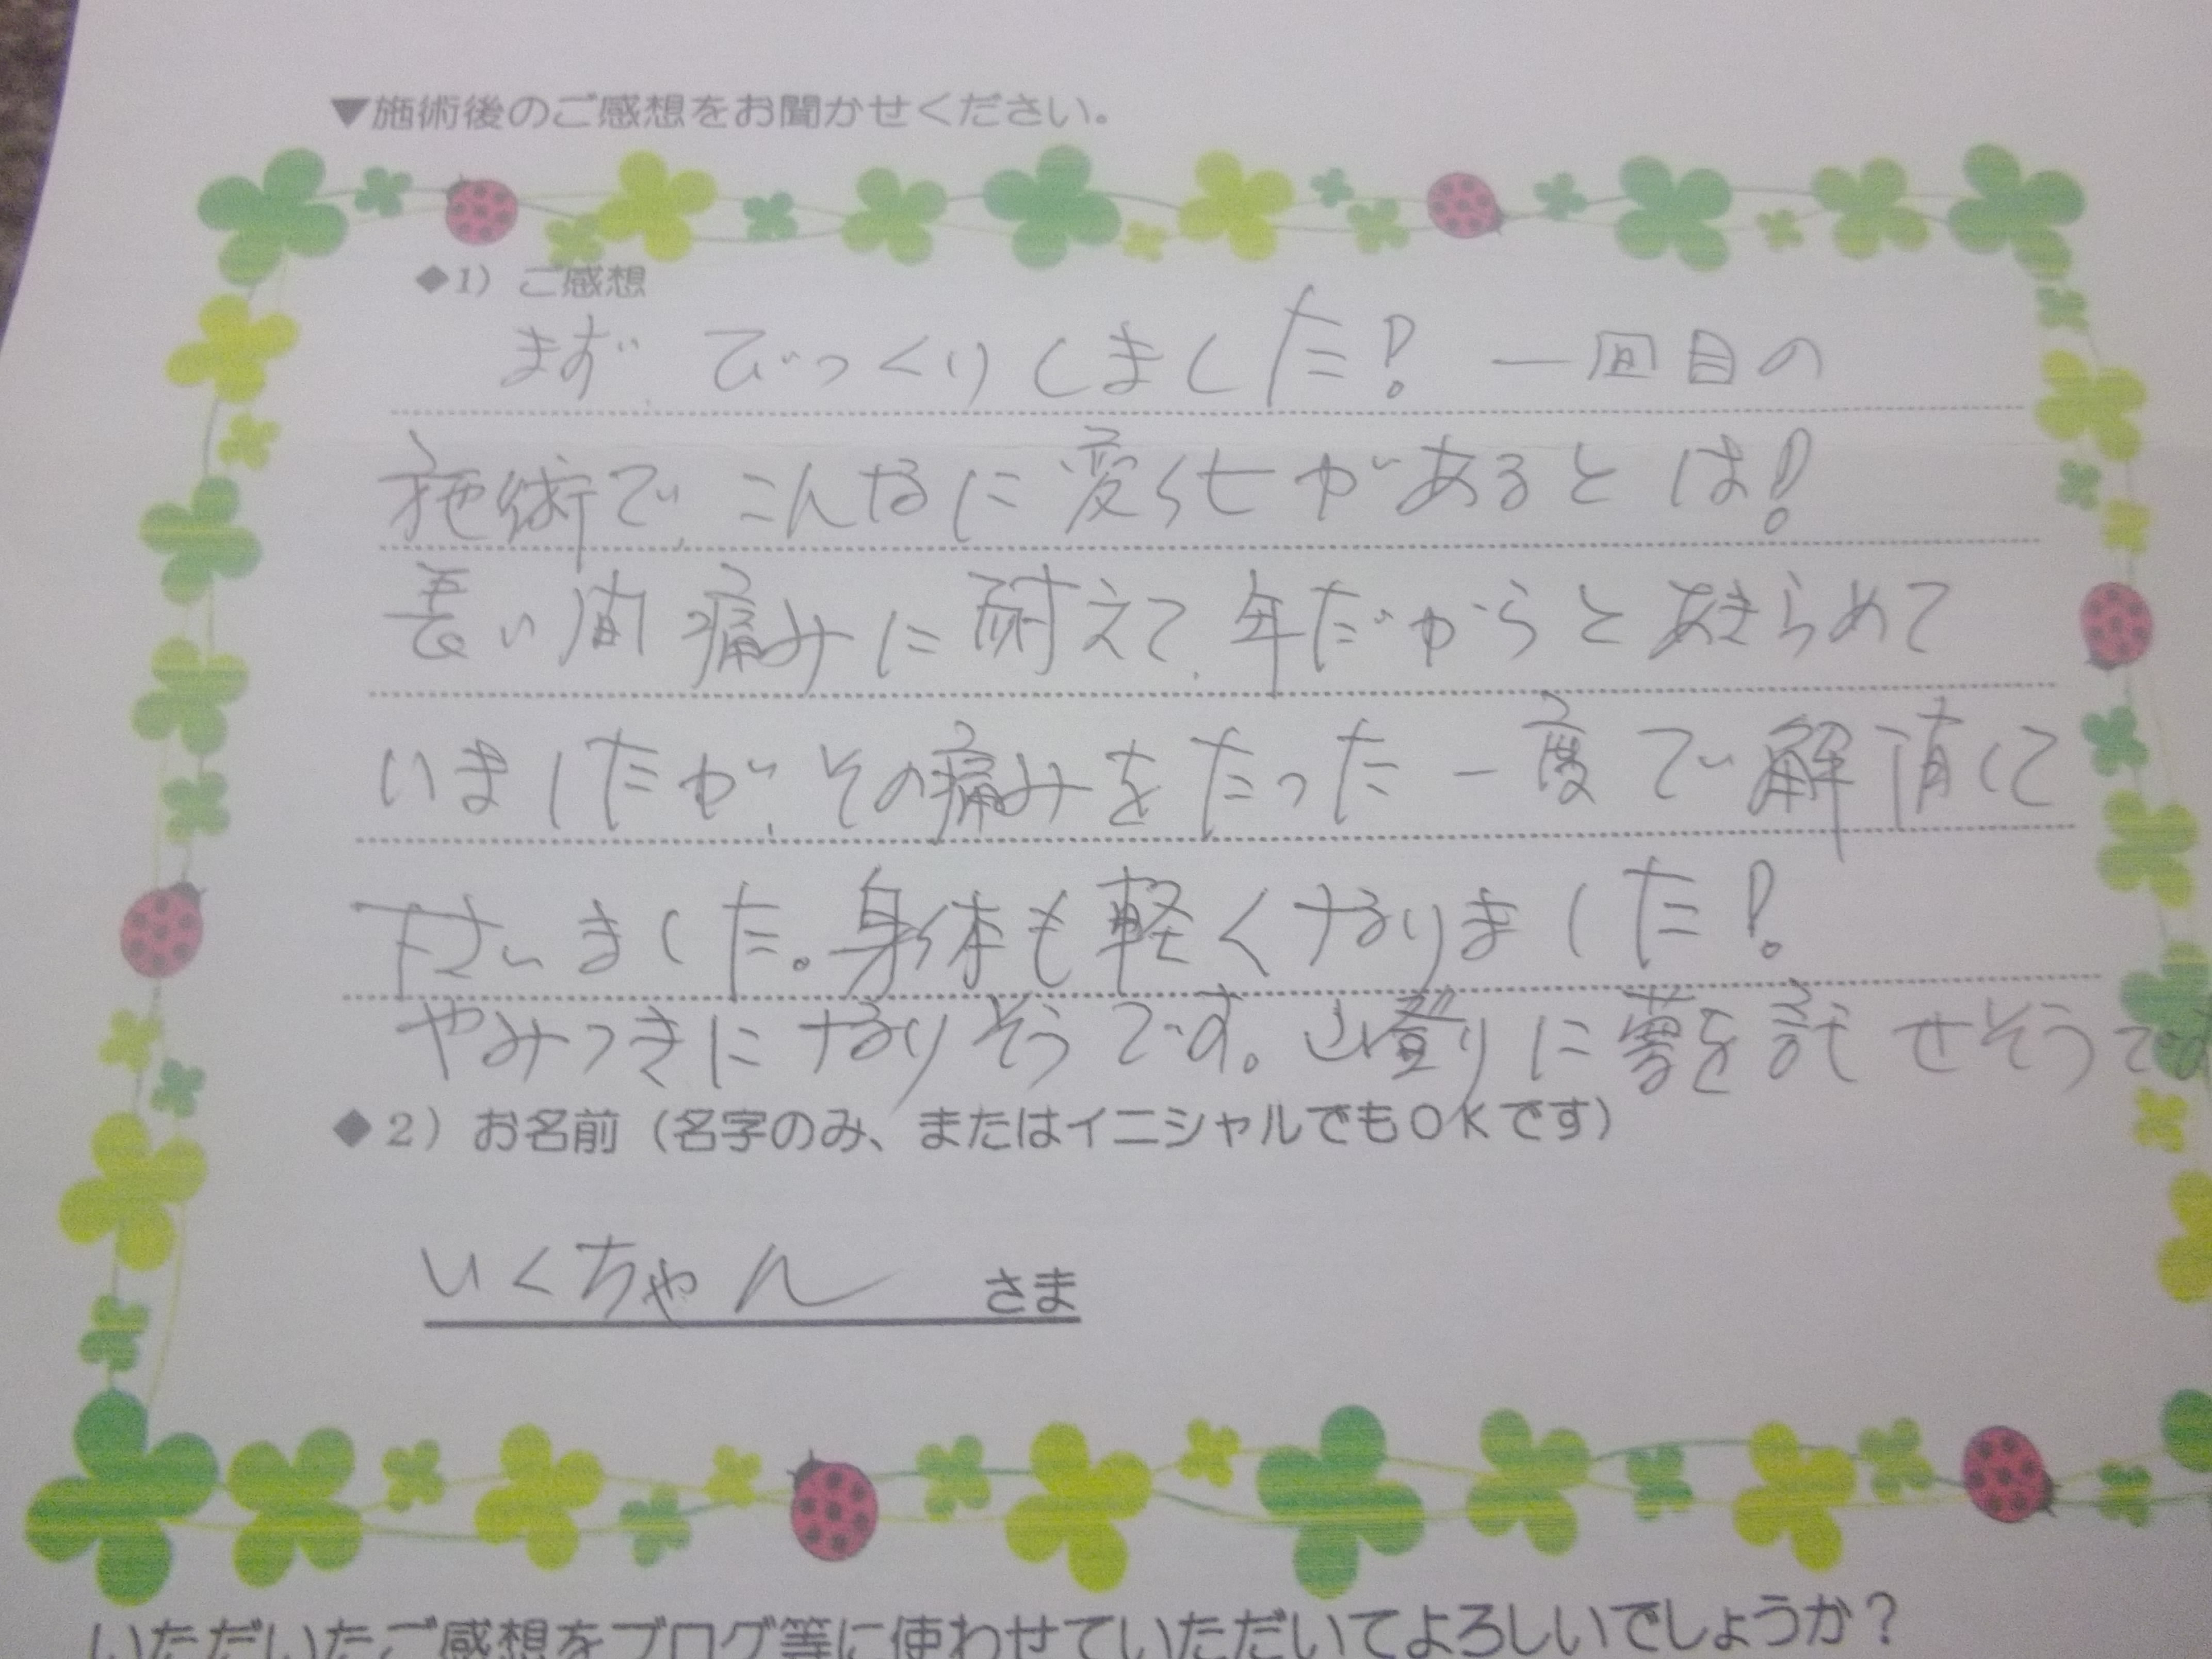 ▼施術後のご感想をお聞かせください。
◆1）ご感想
まず、びっくりしました！一回目の
施術で、こんなに変化があるとは！
長い間痛みに耐えて、年だからとあきらめて
いましたが、その痛みをたった一度で解消して
下さいました。身体も軽くなりました！
やみつきになりそうです。山登りに夢を託せそうです
◆2）お名前（名字のみ、またはイニシャルでもOKです）
いくちゃん さま
いただいたご感想をブログ等に使わせていただいてよろしいでしょうか？